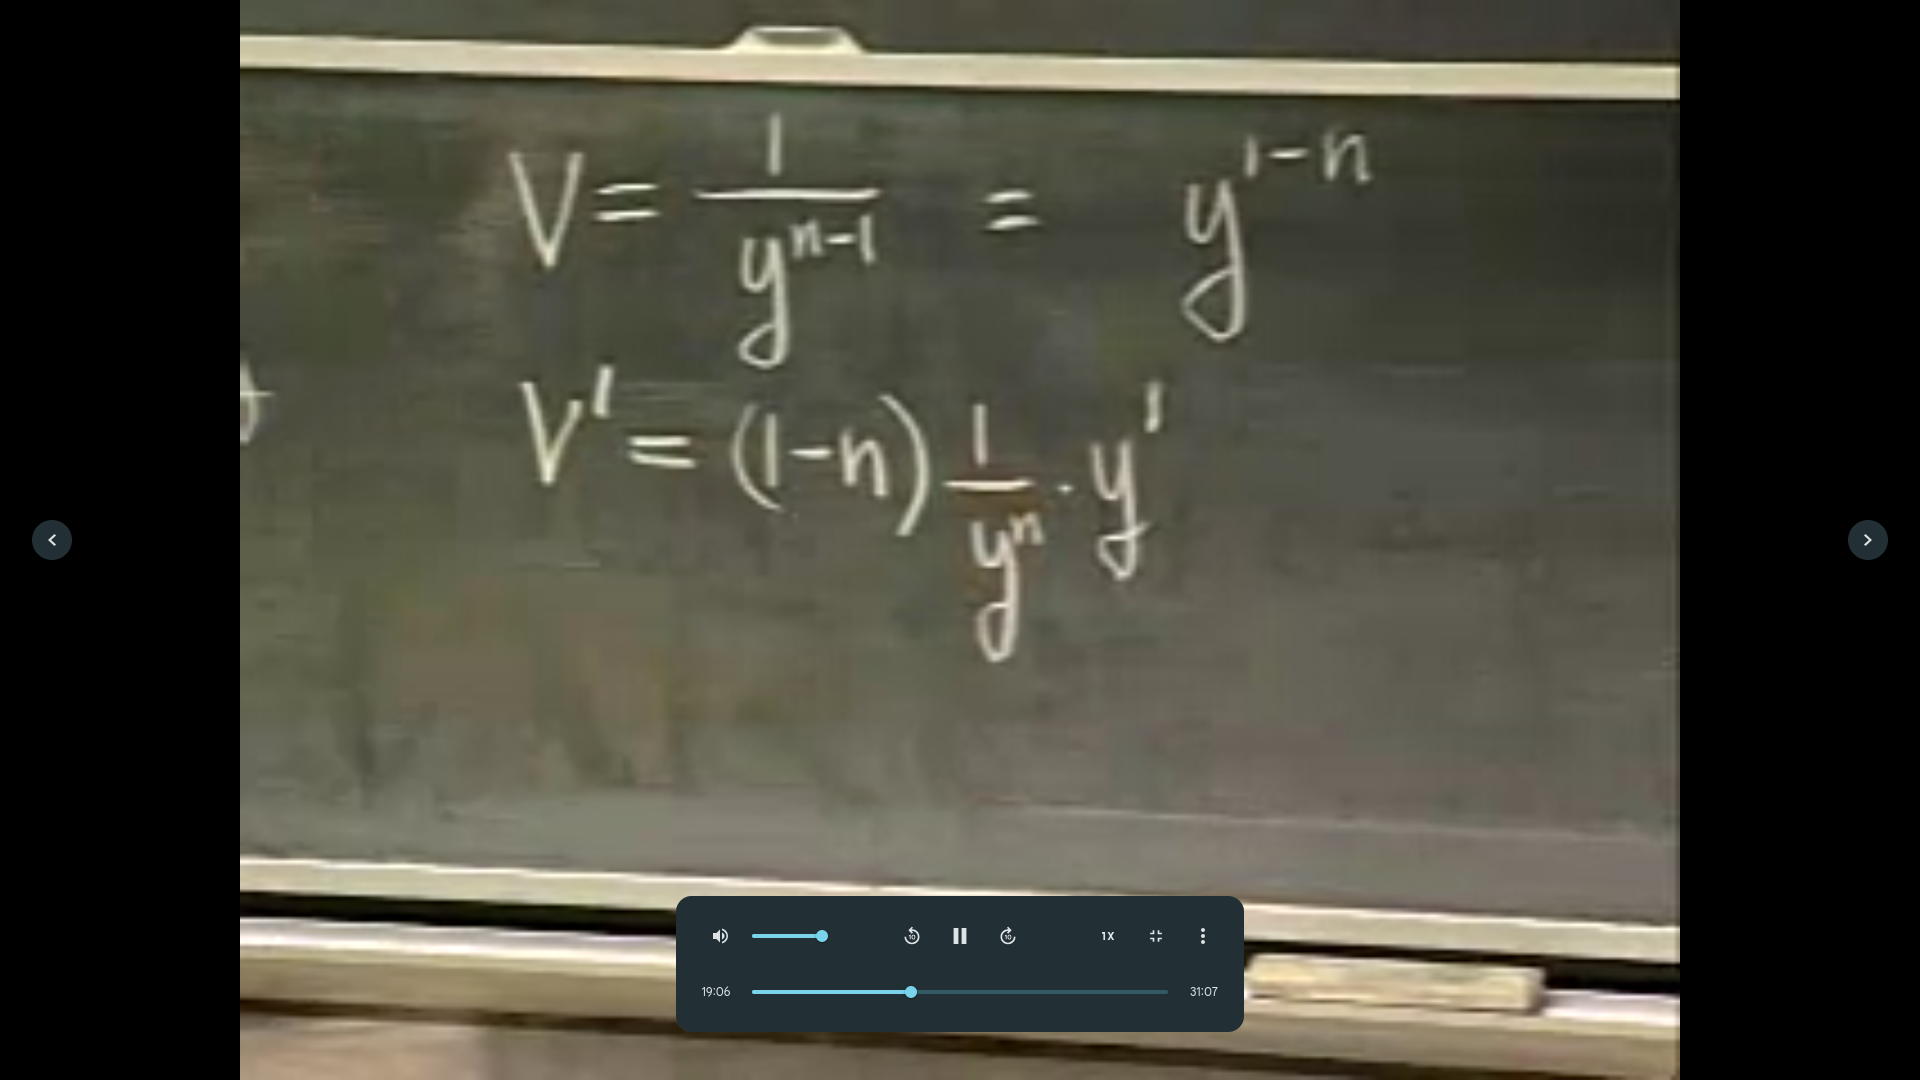 V = 1/y^{n-1} = y^{1-n}
V' = (1-n) 1/y^n · y'
10
10
1X
19:06
31:07